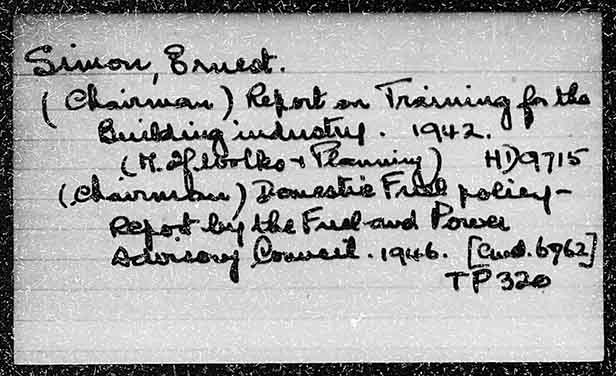 Simon, Ernest.
(Chairman) Report on Training for the
Building industry. 1942.
(M. of Works + Planning) HD9715
(Chairman) Domestic Fuel policy -
Report by the Fuel and Power
Advisory Council. 1946. [Cmd. 6762]
TP 320